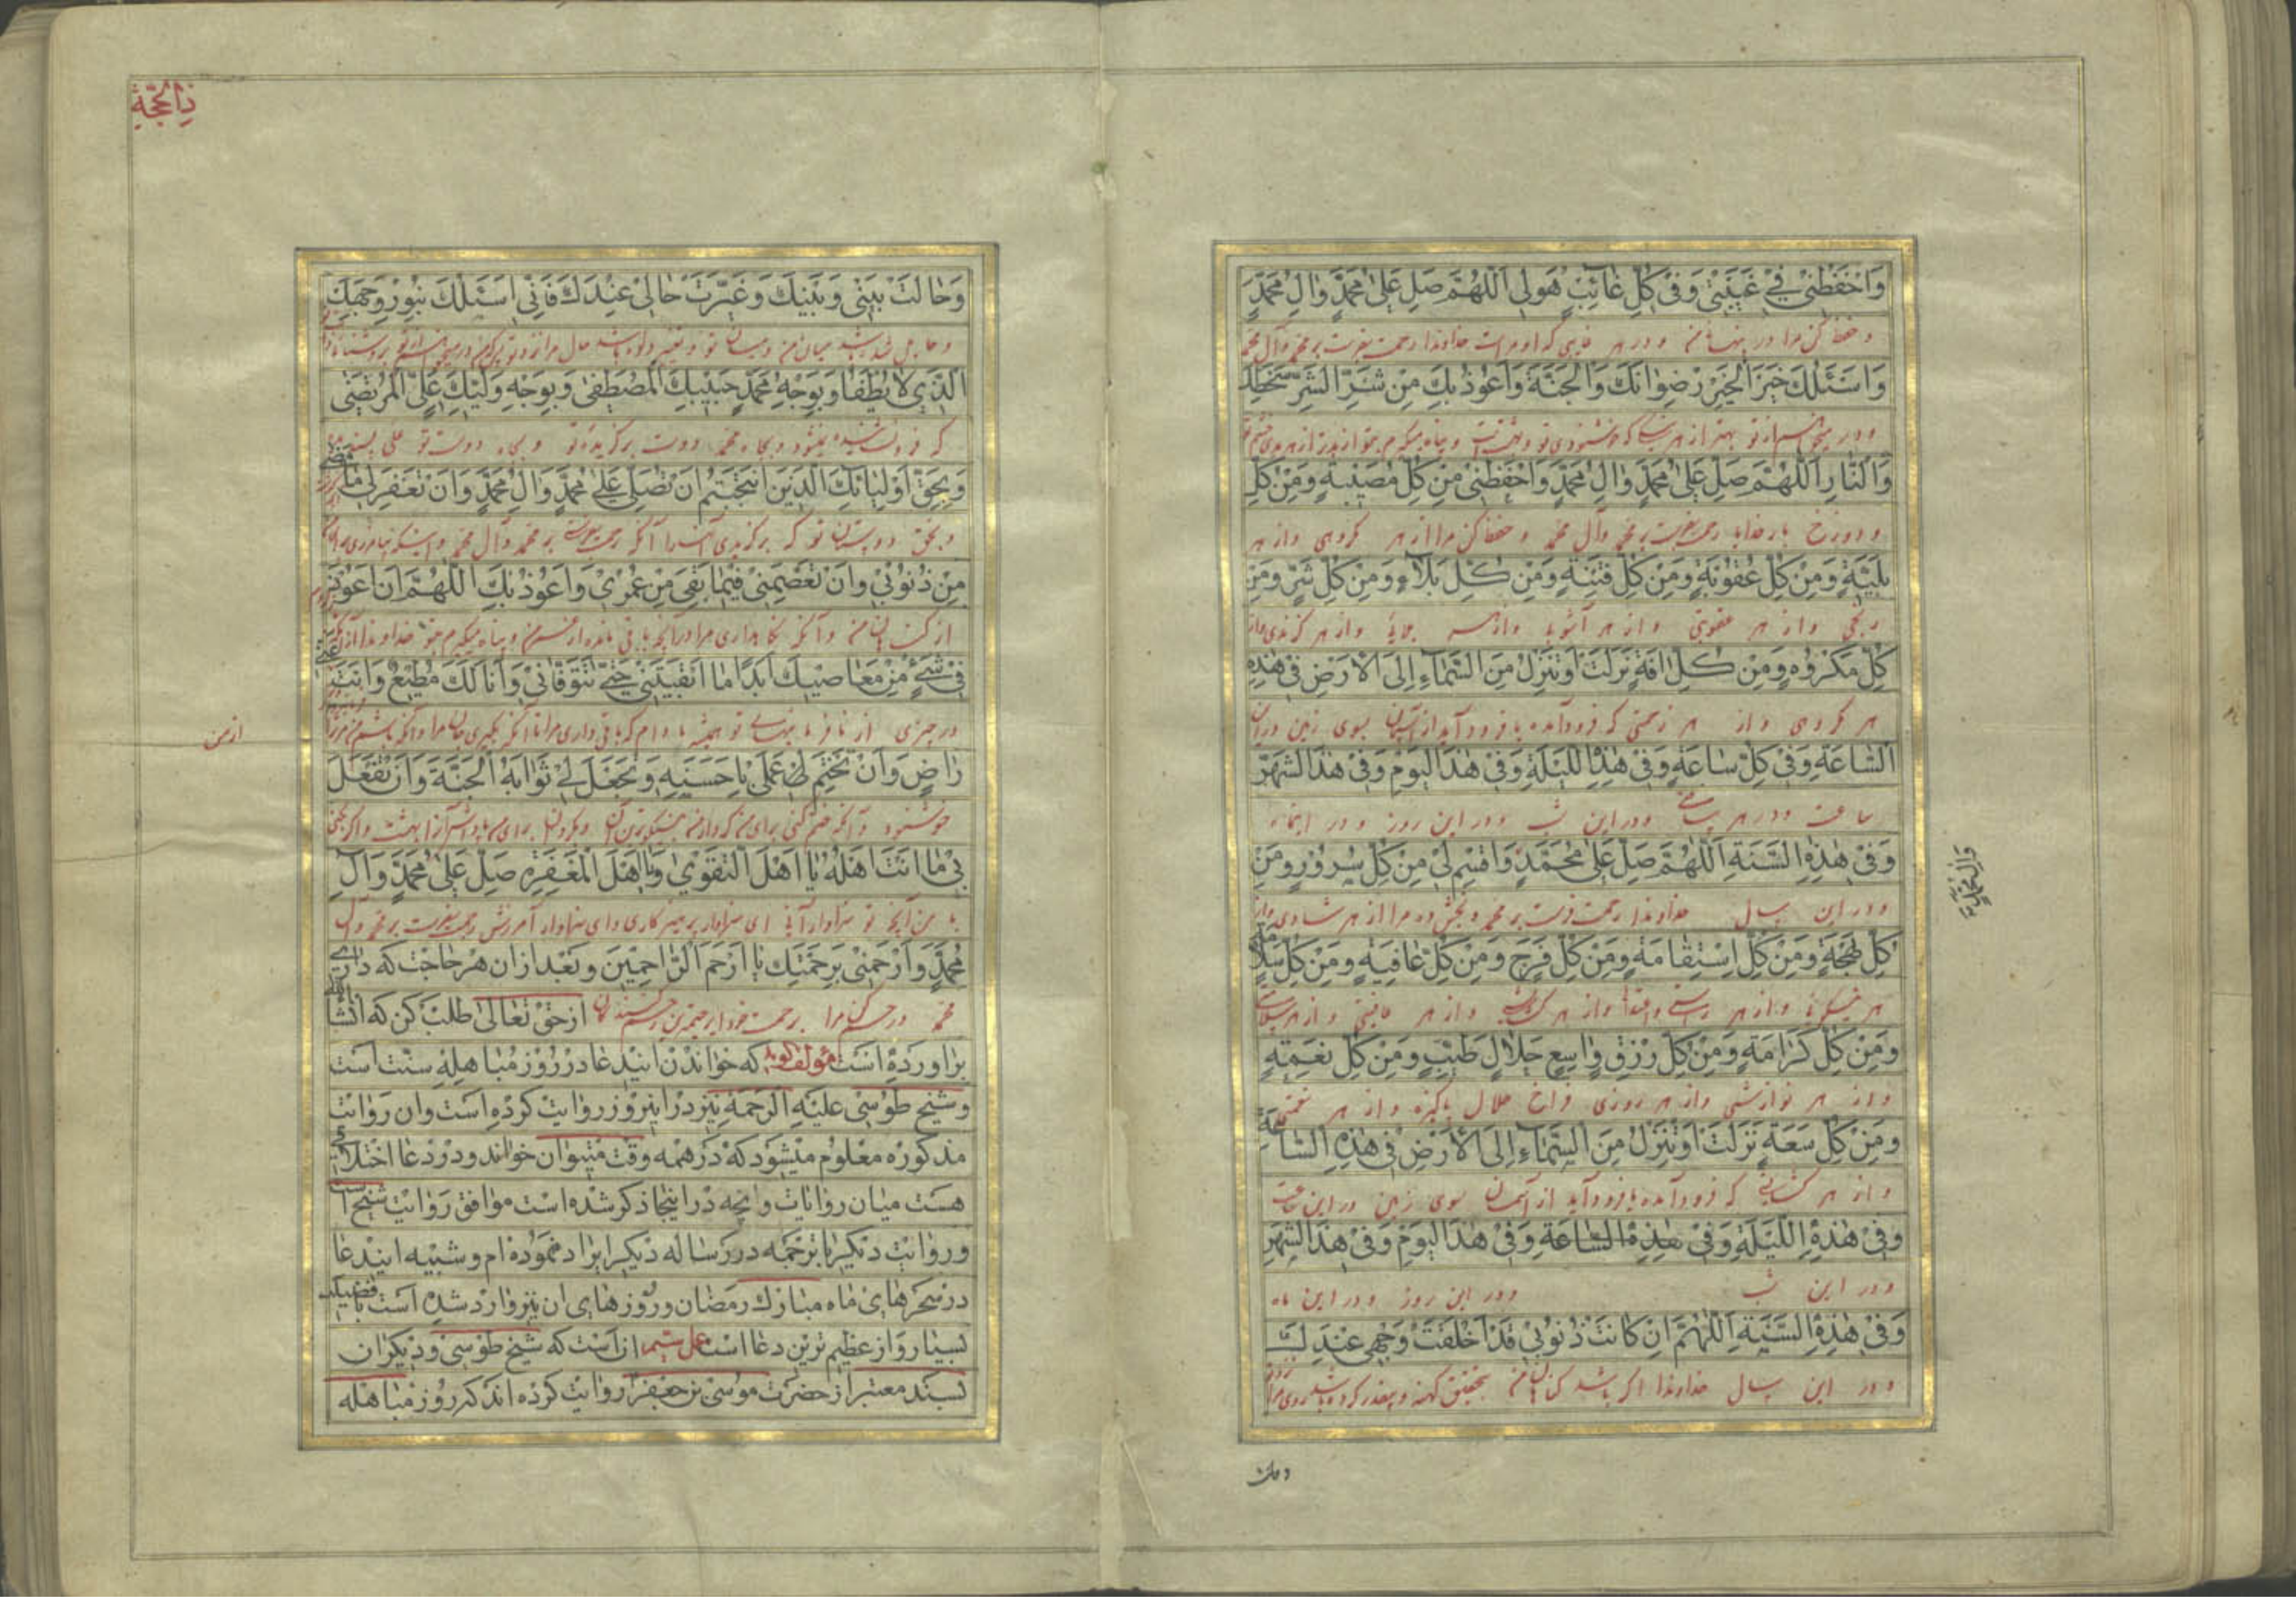 وَاحْفَظْنِي فِي غَيْبَتِي وَفِي كُلِّ غَائِبٍ هُوَ لِي اَللّٰهُمَّ صَلِّ عَلٰى مُحَمَّدٍ وَآلِ مُحَمَّدٍ
و حفظ کن مرا در و در هر غایبی که او مراست خداوندا رحمت بفرست بر محمد و آل محمد
وَاَسْئَلُكَ خَيْرَ الْخَيْرِ رِضْوَانَكَ وَالْجَنَّةَ وَاَعُوذُ بِكَ مِنْ شَرِّ الشَّرِّ سَخَطِكَ
بهتر از هر که خوشنودی تو و بهشتست و پناه میگیرم بتو از بدتر از هر بدی خشم تو
وَالنَّارِ اَللّٰهُمَّ صَلِّ عَلٰى مُحَمَّدٍ وَآلِ مُحَمَّدٍ وَاحْفَظْنِي مِنْ كُلِّ مُصِيبَةٍ وَمِنْ كُلِّ
و دوزخ بار خدایا رحمت بفرست بر محمد و آل محمد و حفظ کن مرا از هر کروهی و از هر
بَلِيَّةٍ وَمِنْ كُلِّ عُقُوبَةٍ وَمِنْ كُلِّ فِتْنَةٍ وَمِنْ كُلِّ بَلَاءٍ وَمِنْ كُلِّ شَرٍّ وَمِنْ
و از هر عقوبتی و از هر آشوب و از هر بلای و از هر کزندی و از
كُلِّ مَكْرُوهٍ وَمِنْ كُلِّ آفَةٍ نَزَلَتْ اَوْ تَنْزِلُ مِنَ السَّمَاءِ اِلَى الْاَرْضِ فِي هٰذِهِ
هر کروهی و از هر زحمتی که فرود آمده یا فرود آید از آسمان بسوی زمین در این
السَّاعَةِ وَفِي كُلِّ سَاعَةٍ وَفِي هٰذِهِ اللَّيْلَةِ وَفِي هٰذَا الْيَوْمِ وَفِي هٰذَا الشَّهْرِ
ساعت و در هر ساعتی و در این شب و در این روز و در اینماه
وَفِي هٰذِهِ السَّنَةِ اَللّٰهُمَّ صَلِّ عَلٰى مُحَمَّدٍ وَاقْسِمْ لِي مِنْ كُلِّ سُرُورٍ وَمِنْ
و در این سال خداوندا رحمت فرست بر محمد و بخش ده مرا از هر شادی و از
كُلِّ بَهْجَةٍ وَمِنْ كُلِّ اسْتِقَامَةٍ وَمِنْ كُلِّ فَرَجٍ وَمِنْ كُلِّ عَافِيَةٍ وَمِنْ كُلِّ سَلَامَةٍ
هر و از هر راستی و از هر کشایش و از هر عافیتی و از هر سلامتی
وَمِنْ كُلِّ كَرَامَةٍ وَمِنْ كُلِّ رِزْقٍ وَاسِعٍ حَلَالٍ طَيِّبٍ وَمِنْ كُلِّ نِعْمَةٍ
و از هر نوازشی و از هر روزی فراخ حلال پاکیزه و از هر نعمتی
وَمِنْ كُلِّ سَعَةٍ نَزَلَتْ اَوْ تَنْزِلُ مِنَ السَّمَاءِ اِلَى الْاَرْضِ فِي هٰذِهِ السَّاعَةِ
و از هر کشایشی که فرود آمده یا فرود آید از آسمان بسوی زمین در این ساعت
وَفِي هٰذِهِ اللَّيْلَةِ وَفِي هٰذِهِ السَّاعَةِ وَفِي هٰذَا الْيَوْمِ وَفِي هٰذَا الشَّهْرِ
و در این شب و در این روز و در این ماه
وَفِي هٰذِهِ السَّنَةِ اَللّٰهُمَّ اِنْ كَانَتْ ذُنُوبِي قَدْ اَخْلَقَتْ وَجْهِي عِنْدَكَ
و در این سال خداوندا اکر باشد کناهان من بتحقیق کهنه کرده باشد روی مرا
ذِالْحِجَّةِ
وَحَالَتْ بَيْنِي وَبَيْنَكَ وَغَيَّرَتْ حَالِي عِنْدَكَ فَاِنِّي اَسْئَلُكَ بِنُورِ وَجْهِكَ
و حایل شده باشد میان من و میان تو و تغیر داده باشد حال مرا نزد تو
الَّذِي لَا يُطْفَأُ وَبِوَجْهِ مُحَمَّدٍ حَبِيبِكَ الْمُصْطَفٰى وَبِوَجْهِ وَلِيِّكَ عَلِيٍّ الْمُرْتَضٰى
که نمیشود و بجاه محمد دوست برکزیده تو و بجاه دوست تو علی
وَبِحَقِّ اَوْلِيَائِكَ الَّذِينَ انْتَجَبْتَهُمْ اَنْ تُصَلِّيَ عَلٰى مُحَمَّدٍ وَآلِ مُحَمَّدٍ وَاَنْ تَغْفِرَ لِي مَا مَضٰى
و بحق دوستان تو که برکزیدی آنکه رحمت بفرستی بر محمد و آل محمد و اینکه بیامرزی
مِنْ ذُنُوبِي وَاَنْ تَعْصِمَنِي فِيمَا بَقِيَ مِنْ عُمْرِي وَاَعُوذُ بِكَ اللّٰهُمَّ اَنْ اَعُودَ
از کناهان من و آنکه نکاهداری مرا در آنچه باقی مانده از عمر من و پناه میکیرم بتو خداوندا
فِي شَيْءٍ مِنْ مَعَاصِيكَ اَبَدًا مَا اَبْقَيْتَنِي حَتّٰى تَتَوَفَّانِي وَاَنَا لَكَ مُطِيعٌ وَاَنْتَ عَنِّي
در چیزی از تو همیشه مادام که باقی داری مرا تا آنکه بکیری جان مرا
از من
رَاضٍ وَاَنْ تَخْتِمَ لِي عَمَلِي بِاَحْسَنِهِ وَتَجْعَلَ لِي ثَوَابَهُ الْجَنَّةَ وَاَنْ تَفْعَلَ
خوشنود و آنکه ختم کنی برای من کردار من
بِي مَا اَنْتَ اَهْلُهُ يَا اَهْلَ التَّقْوٰى وَيَا اَهْلَ الْمَغْفِرَةِ صَلِّ عَلٰى مُحَمَّدٍ وَآلِ
با من آنچه تو سزاوار آنی ای سزاوار پرهیزکاری و ای سزاوار آمرزش رحمت بفرست بر محمد و آل
مُحَمَّدٍ وَارْحَمْنِي بِرَحْمَتِكَ يَا اَرْحَمَ الرَّاحِمِينَ وبعد از ان هر حاجت که داری
محمد و رحم کن مرا برحمت خود از حق تعالی طلب کن که انشاءالله
براورده است مؤلف کوید که خواندن ایندعا در روز مباهله سنت است
وشیخ طوسی علیه الرحمة نیز در اینروز روایت کرده است وان روایت
مذکوره معلوم میشود که در همه وقت میتوان خواند ودر دعا اختلاف
هست میان روایات وانچه در اینجا ذکر شده است موافق روایت شیخ است
وروایت دیکر با ترجمه در رساله دیکر ایراد نموده ام وشبیه ایندعا
در سحرهای ماه مبارک رمضان وروزهای ان نیز وارد شده است با فضیلت
بسیار واز عظیم ترین دعا است عمل ششم ان است که شیخ طوسی ودیکران
بسند معتبر از حضرت موسی بن جعفر روایت کرده اند که روز مباهله